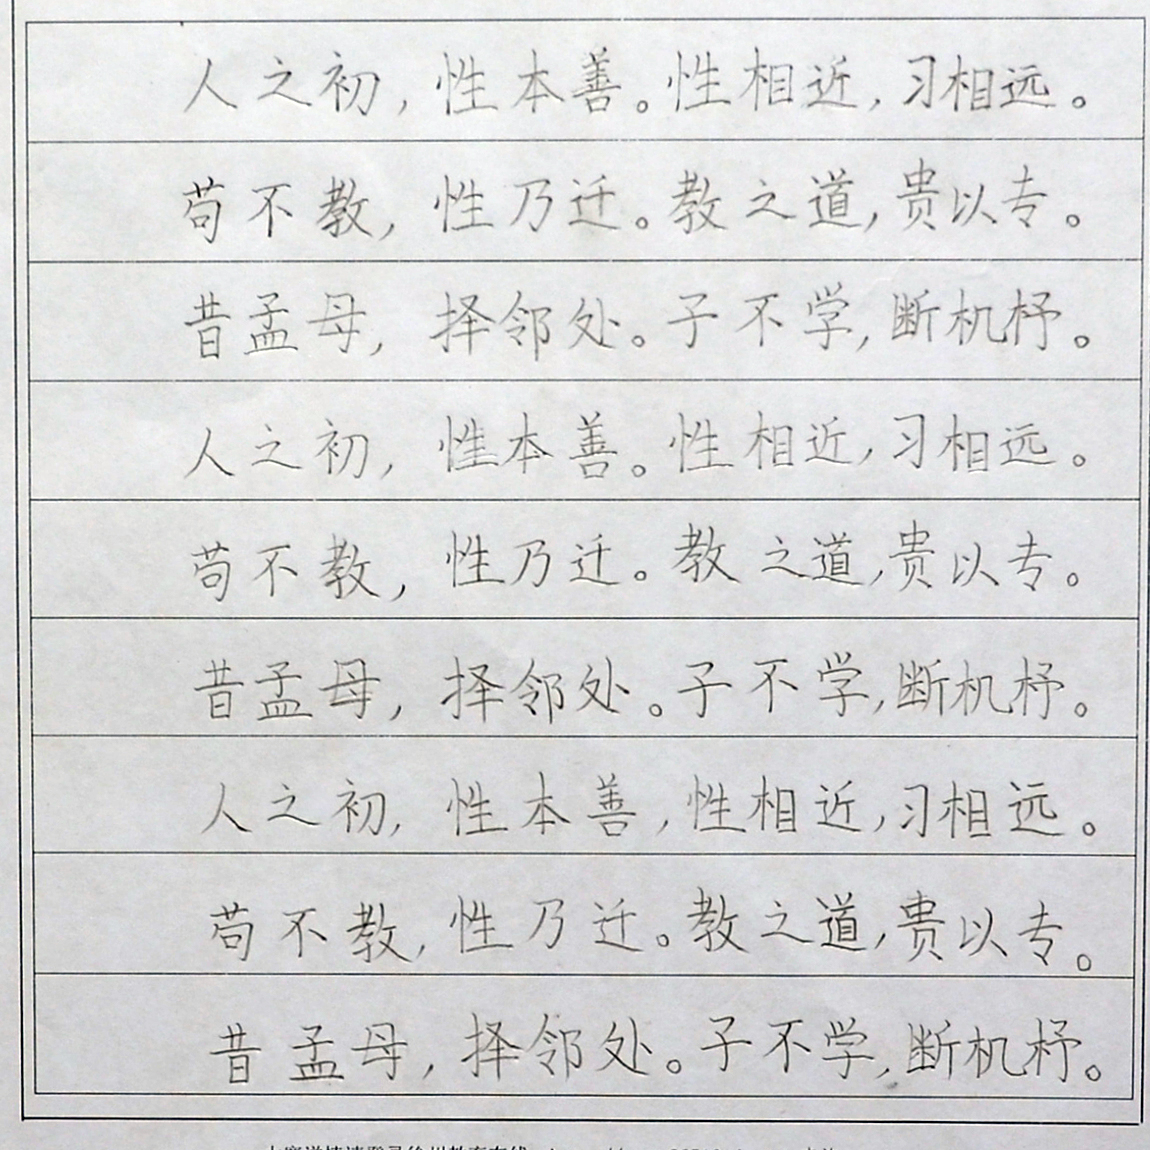 人之初,性本善。性相近,习相远。
苟不教,性乃迁。教之道,贵以专。
昔孟母,择邻处。子不学,断机杼。
人之初,性本善。性相近,习相远。
苟不教,性乃迁。教之道,贵以专。
昔孟母,择邻处。子不学,断机杼。
人之初,性本善,性相近,习相远。
苟不教,性乃迁。教之道,贵以专。
昔孟母,择邻处。子不学,断机杼。